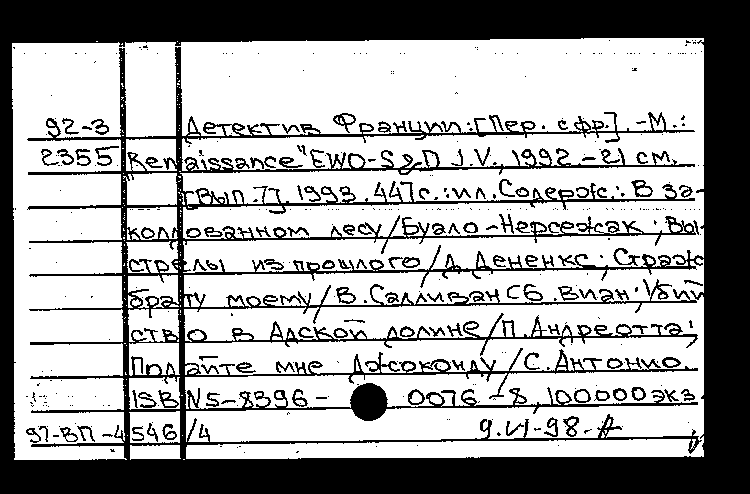 92-3 Детектив Франции:[Пер. с фр.]. -М.:
2355 "Renaissance" EWO-S&D J.V., 1992.-21 см.
[Вып.7]. 1993. 447с.:ил. Содерж.: В за-
колдованном лесу/Буало-Нерсежак; Вы-
стрелы из прошлого/Д.Дененкс; Страж
брату моему/В.Салливан [Б.Виан; Убий
ство в Адской долине/П.Андреотта;
Подайте мне Джоконду/С.Антонио.
ISBN 5-8396- 0076-8, 100000 экз.
97-ВП-4546/4 9.VI-98-А